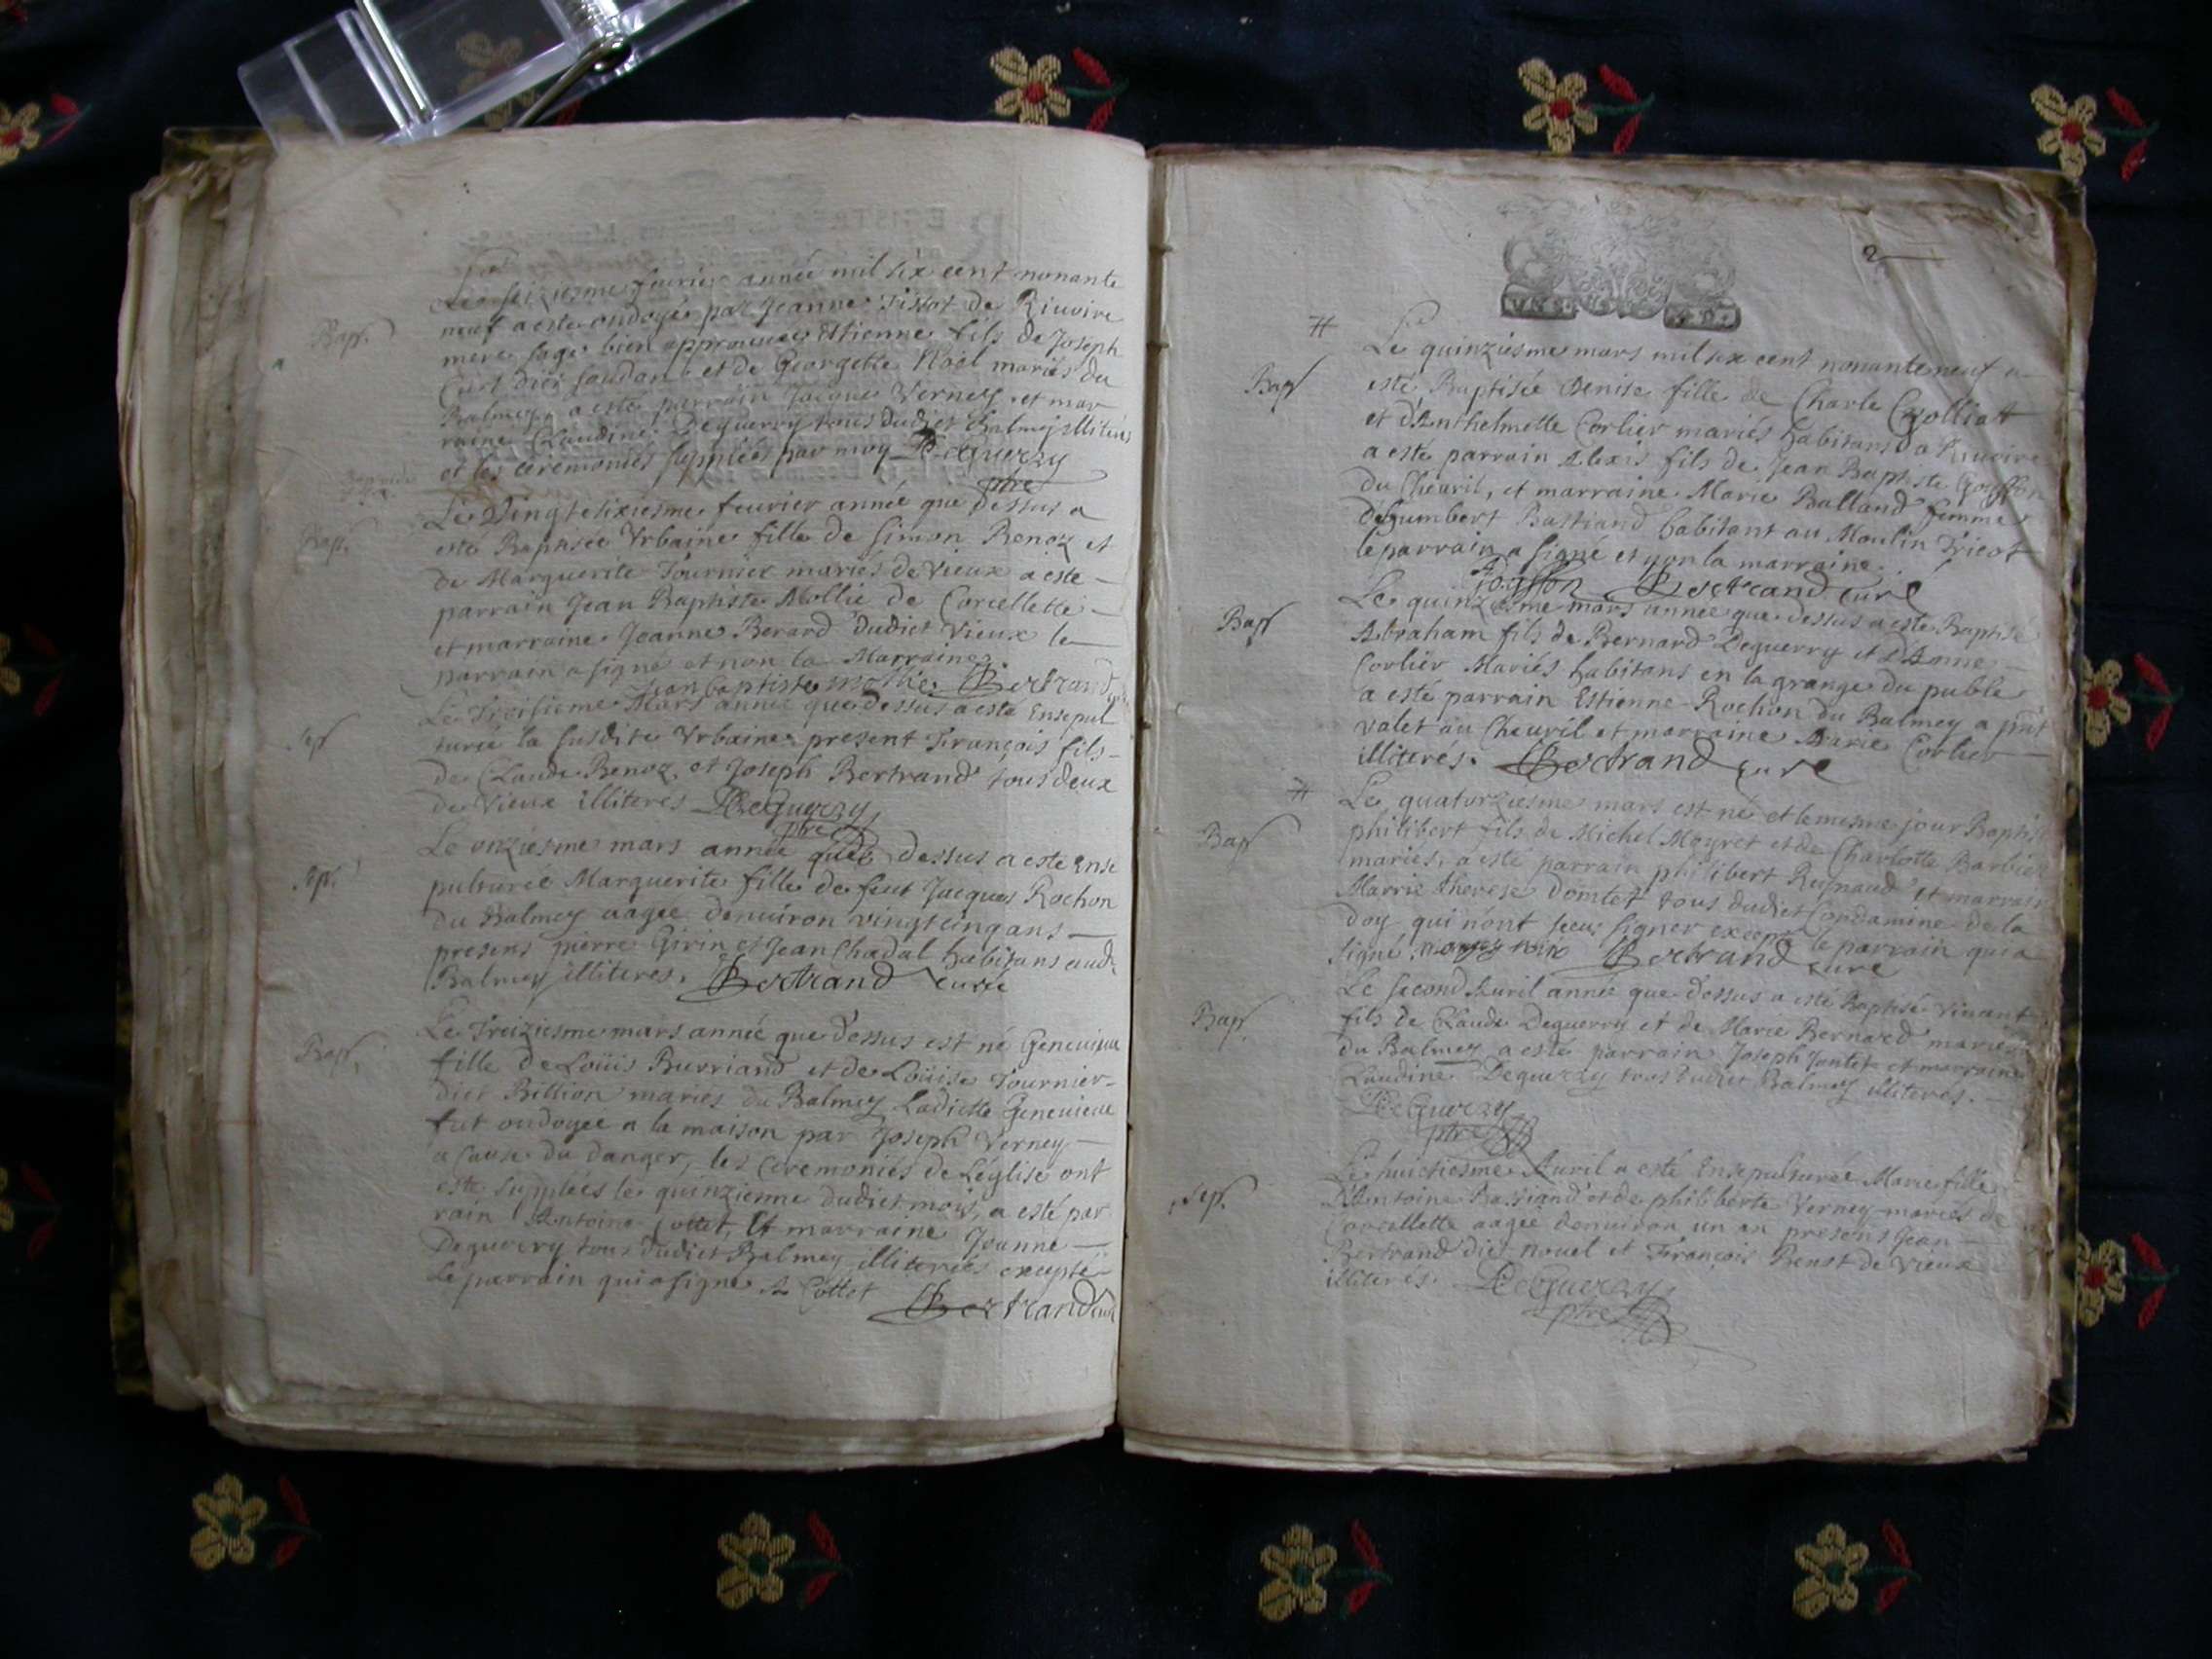 Le seiziesme feurier année mil six cent nonante
neuf a este ondoyé par Jeanne Tissot de Riuoire
mere sage bien approuuée Estienne fils de Joseph
dict et de Georgette Noël mariés du
Balmey, a esté parrain Jacque Verney et mar
raine Claudine Deguerry tous dudict Balmey illiterés
et les ceremonies supplées par moy DeGuerry
ptre
Bap.
Le Vingtesixiesme feurier année que dessus a
esté Baptisée Vrbaine fille de Simon Benoz et
de Marguerite Tournier mariés de Vieux a esté
parrain Jean Baptiste Mollie de Corcellette
et marraine Jeanne Berard dudict Vieux le
parrain a signé et non la Marraine
Jean baptiste mollie Bertrand
Bap.
Le Troisieme Mars année que dessus a esté Ensepul
turée la susdite Vrbaine present François fils
de Claude Benoz, et Joseph Bertrand tous deux
de Vieux illiteres DeGuerry
ptre
Sep
Le onziesme mars année que dessus a esté Ense
pulturée Marguerite fille de feut Jacques Rochon
du Balmey aagée denuiron vingt cinq ans
presens pierre Girin et Jean Chadal habitans aud
Balmey illiteres. Bertrand curé
Sep.
Le Treiziesme mars année que dessus est né Geneuieue
fille de Loüis Burriand et de Loüise Tournier
dict Billion mariés du Balmey Ladicte Geneuieue
fut ondoyée a la maison par Joseph Verney
a Cause du danger, les Ceremoniés de L'église ont
esté supplées le quinzienne dudict mois, a esté par
rain Antoine Cottet, et marraine Jeanne
Deguerry tous dudict Balmey illiterées excepté
Le parrain qui a signé A Cottet Bertrand curé
Bap.
2
Le quinziesme mars mil six cent nonante neuf a
esté Baptisée Denise fille de Charle Crolliat
et d'Anthelmette Corlier mariés habitans a Riuoire
a esté parrain Alexis fils de Jean Baptiste Goyffon
du Cheuril, et marraine Marie Balland femme
de humbert Bastiand habitant au Moulin Tricot
le parrain a signé et non la marraine.
A Goyffon Bertrand curé
Bap
Le quinziesme mars année que dessus a este Baptisé
Abraham fils de Bernard Deguerry et d'Anne
Corlier Mariés habitans en la grange du puble
a esté parrain Estienne Rochon du Balmey a pnt
valet au Cheuril et marraine Marie Corlier
illiterés. Bertrand curé
Bap
Le quatorziesme mars est né et le mesme jour Baptisé
philibert fils de Michel Moyret et de Charlotte Barbier
mariés, a esté parrain philibert Reynaud et marraine
Marrie therese Domtet tous dudict Condamine de la
doy qui n'ont sceu signer excepté le parrain qui a
signé Bertrand curé
Bap
Le second Auril année que dessus a esté Baptisé Vincent
fils de Claude Deguerry et de Marie Bernard mariés
du Balmey a esté parrain Joseph Jantet et marraine
Claudine Deguerry tous dudict Balmey illiterés.
DeGuerry
ptre
Bap.
Le huictiesme Auril a esté Ensepulturée Marie fille
D'Antoine Bastiand et de philiberte Verney mariés de
Corcellette aagée denuiron un an presens Jean
Bertrand dict nouel et François Benst de Vieux
illiterés. DeGuerry
ptre
Sep.